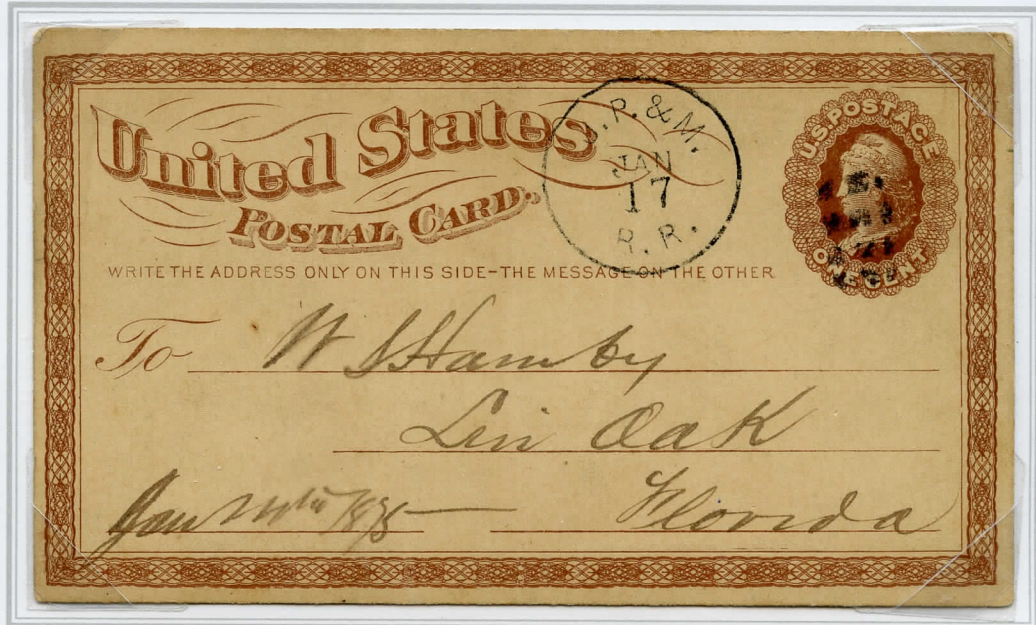 United States
POSTAL CARD.
U.S. POSTAGE
ONE CENT
. P. & M.
JAN
17
R. R.
WRITE THE ADDRESS ONLY ON THIS SIDE–THE MESSAGE ON THE OTHER
To W S Hamby
Liv Oak
Florida
Jan 1875